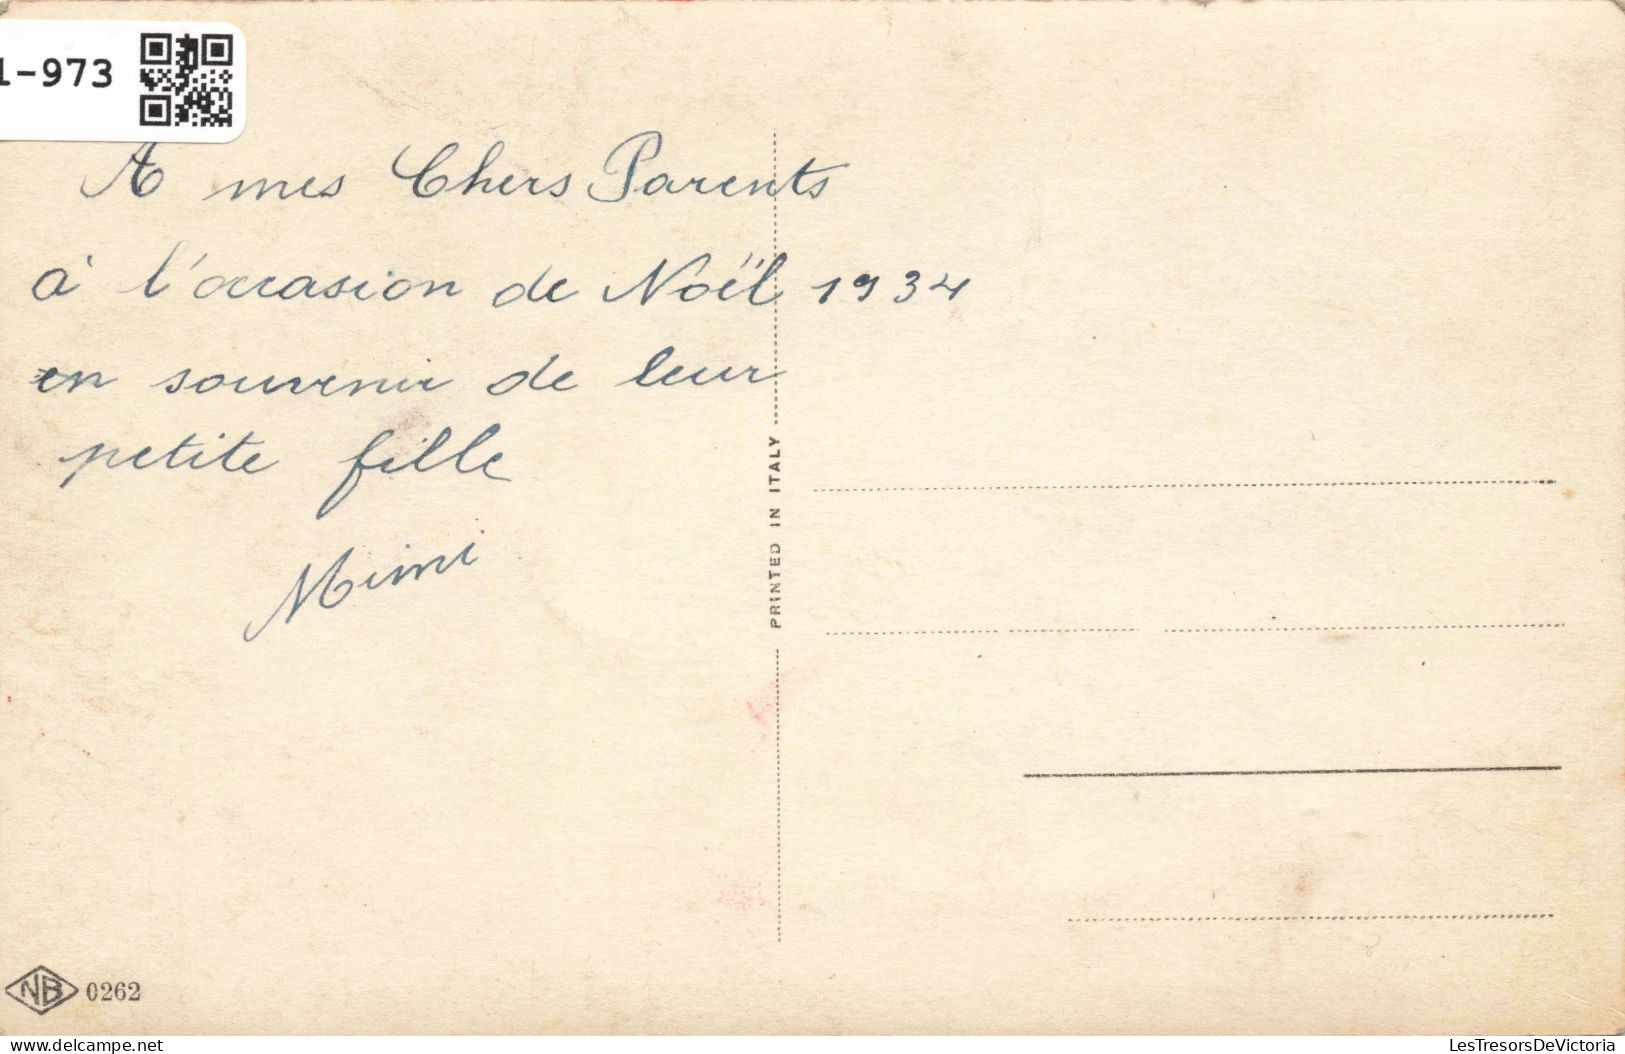 1-973
A mes Chers Parents
à l'occasion de Noël 1934
en souvenir de leur
petite fille
Mimi
PRINTED IN ITALY
NB 0262
delcampe.net
LesTresorsDeVictoria